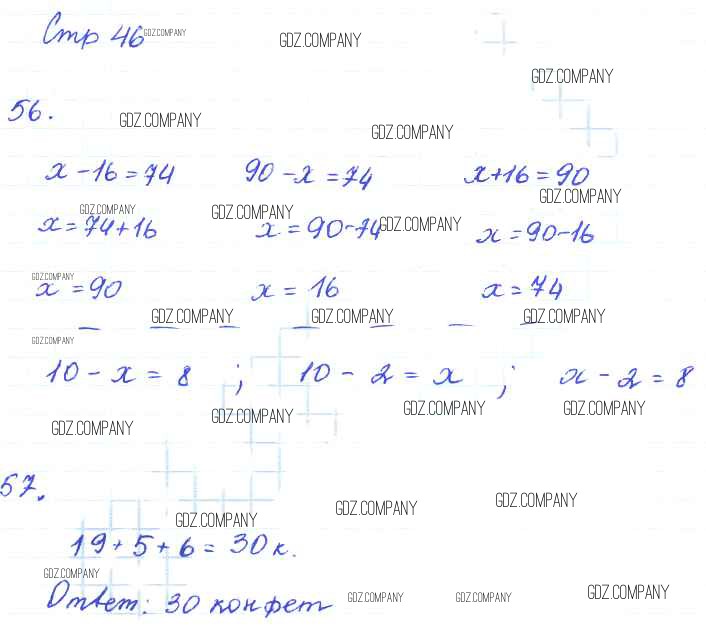 Стр 46 GDZ.COMPANY GDZ.COMPANY
GDZ.COMPANY
56. GDZ.COMPANY GDZ.COMPANY
x - 16 = 74 90 - x = 74 x + 16 = 90
GDZ.COMPANY GDZ.COMPANY GDZ.COMPANY GDZ.COMPANY
x = 74 + 16 x = 90 - 74 x = 90 - 16
GDZ.COMPANY
x = 90 x = 16 x = 74
GDZ.COMPANY GDZ.COMPANY GDZ.COMPANY
GDZ.COMPANY
10 - x = 8 ; 10 - 2 = x ; x - 2 = 8
GDZ.COMPANY GDZ.COMPANY GDZ.COMPANY GDZ.COMPANY
57. GDZ.COMPANY GDZ.COMPANY
GDZ.COMPANY
19 + 5 + 6 = 30 к.
GDZ.COMPANY
Ответ: 30 конфет GDZ.COMPANY GDZ.COMPANY GDZ.COMPANY